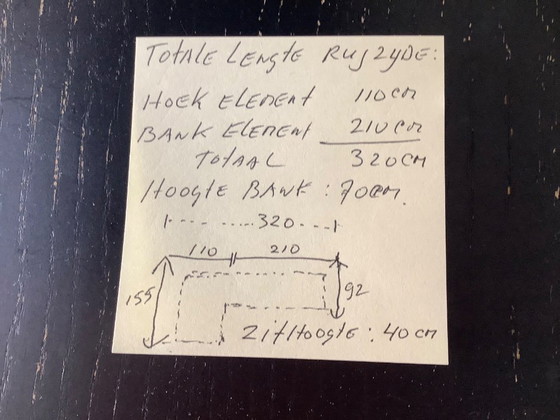 TOTALE LENGTE RUGZYDE:
HOEK ELEMENT 110 cm
BANK ELEMENT 210 cm
TOTAAL 320 CM
HOOGTE BANK : 70 cm.
320
110 210
155 92
ZITHOOGTE : 40 cm